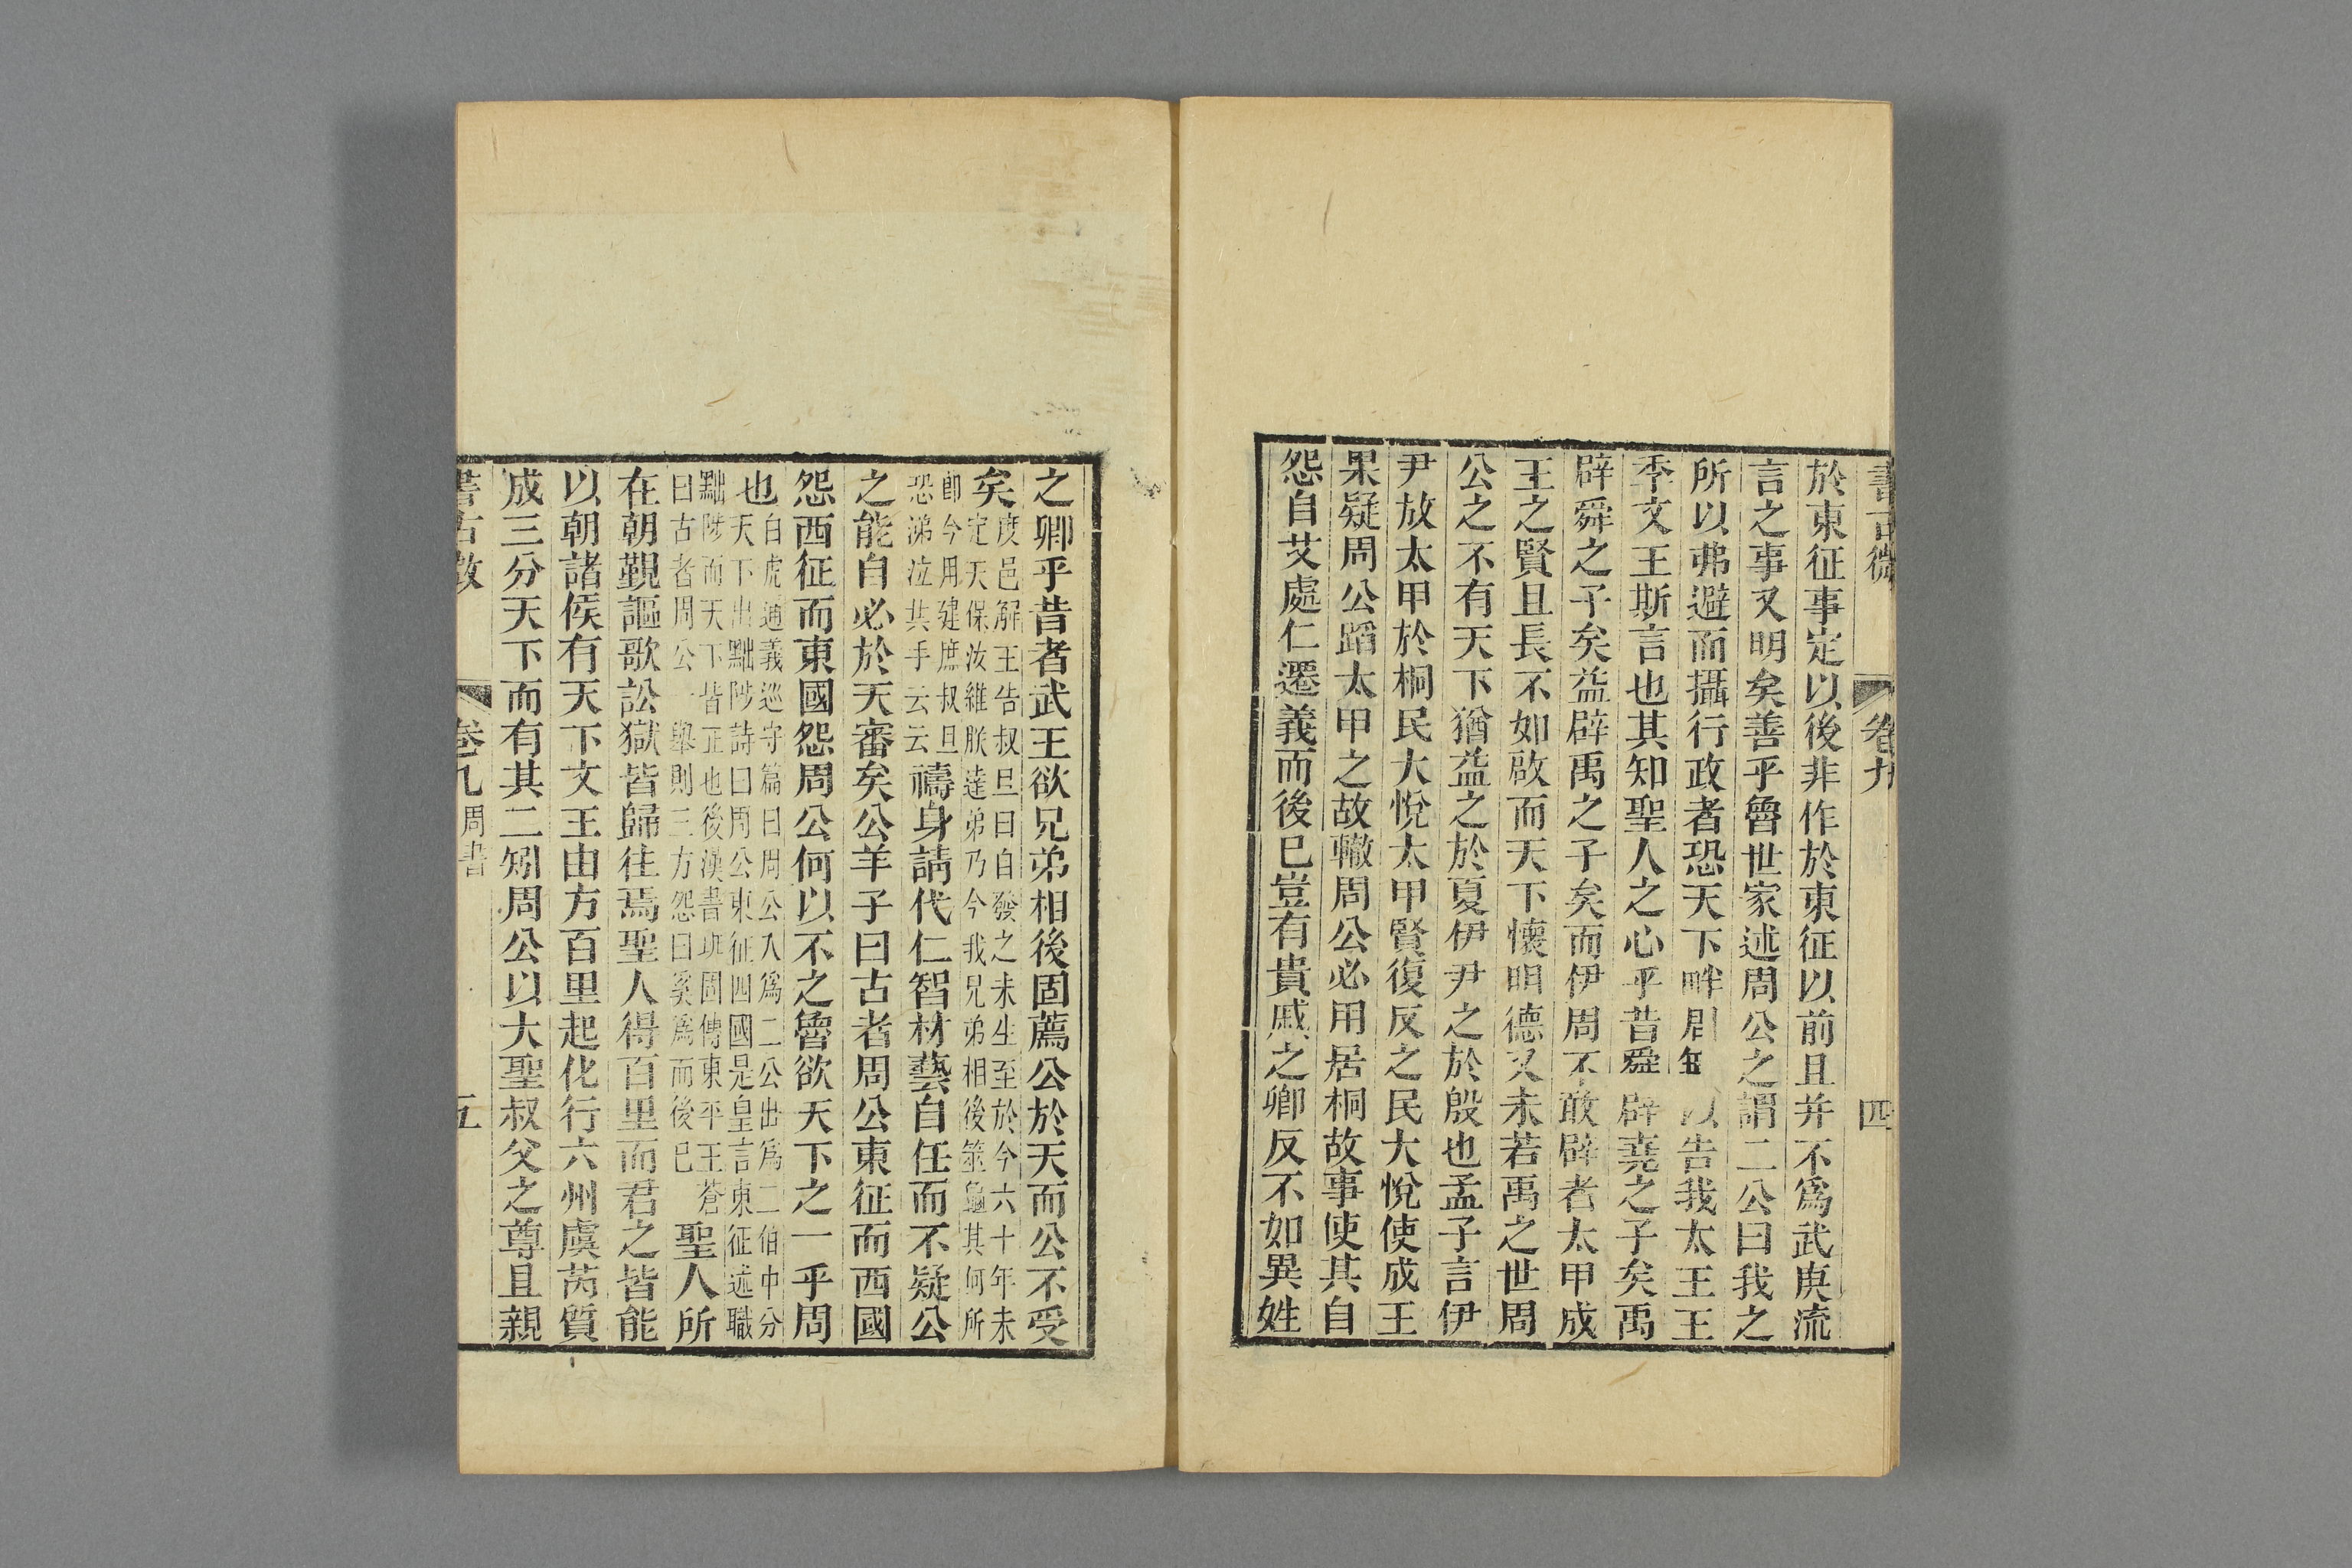 書古微 卷九 四
於東征事定以後非作於東征以前且并不爲武庚流
言之事又明矣善乎魯世家述周公之謂二公曰我之
所以弗避而攝行政者恐天下畔周 以告我太王王
季文王斯言也其知聖人之心乎昔舜辟堯之子矣禹
辟舜之子矣益辟禹之子矣而伊周不敢辟者太甲成
王之賢且長不如啟而天下懷明德又未若禹之世周
公之不有天下猶益之於夏伊尹之於殷也孟子言伊
尹放太甲於桐民大悅太甲賢復反之民大悅使成王
果疑周公蹈太甲之故轍周公必用居桐故事使其自
怨自艾處仁遷義而後已豈有貴戚之卿反不如異姓
之卿乎昔者武王欲兄弟相後固薦公於天而公不受
矣度邑解王告叔旦曰自發之未生至於今六十年未
定天保汝維朕達弟乃今我兄弟相後筮龜其何所
卽今用建庶叔旦
恐涕泣共手云云禱身請代仁智材藝自任而不疑公
之能自必於天審矣公羊子曰古者周公東征而西國
怨西征而東國怨周公何以不之魯欲天下之一乎周
也白虎通義巡守篇曰周公入爲二公出爲二伯中分
天下出黜陟詩曰周公東征四國是皇言東征述職
黜陟而天下皆正也後漢書班固傳東平王蒼
曰古者周公一舉則三方怨曰奚爲而後已聖人所
在朝覲謳歌訟獄皆歸往焉聖人得百里而君之皆能
以朝諸侯有天下文王由方百里起化行六州虞芮質
成三分天下而有其二矧周公以大聖叔父之尊且親
書古微 卷九 周書 五